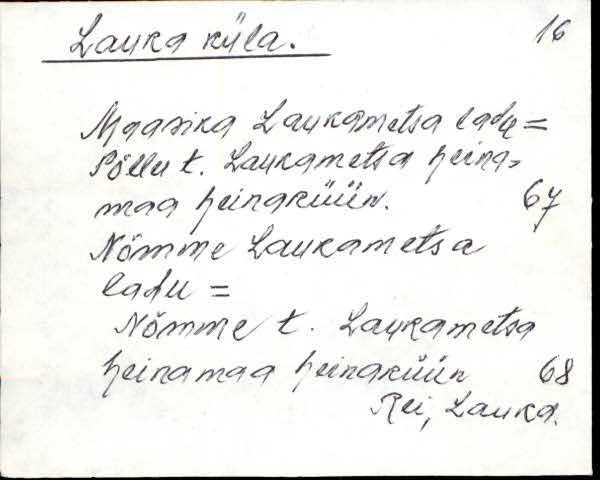 Lauka küla. 16
Maasika Laukametsa ladu =
Põllu t. Laukametsa heina-
maa heinaküün. 67
Nõmme Laukametsa
ladu =
Nõmme t. Laukametsa
heinamaa heinaküün 68
Rei, Lauka.